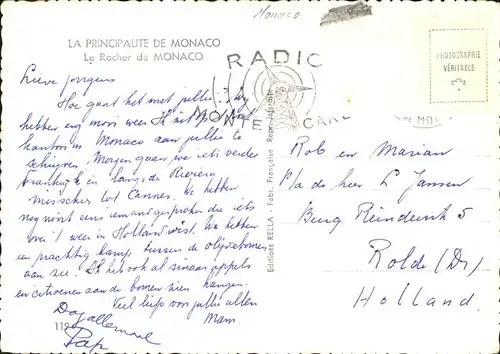 Monaco
LA PRINCIPAUTE DE MONACO
Le Rocher de MONACO
RADIO
MONTE CARL
PHOTOGRAPHIE
VÉRITABLE
Editions RELLA - Fabr. Française Repr. Interdite
Lieve jongens
Hoe gaat het met jullie? Wij
hebben erg mooi weer. Ik zit op
kantoor in Monaco aan jullie te
schrijven. Morgen gaan we iets verder
Frankrijk in langs de Rivièra
misschien tot Cannes. We hebben
nog nooit eens iemand gesproken die iets
over 't weer in Holland wist. We hebben
een prachtig kamp tussen de olijvebomen
aan zee. Ik heb ook al sinaasappels
en citroenen aan de bomen zien hangen.
Veel liefs voor jullie allen
Mam.
Dag allemaal
Pap
119
Rob en Marian
P/a de heer L Jansen
Burg Reindersstr 5
Rolde (Dr)
Holland.